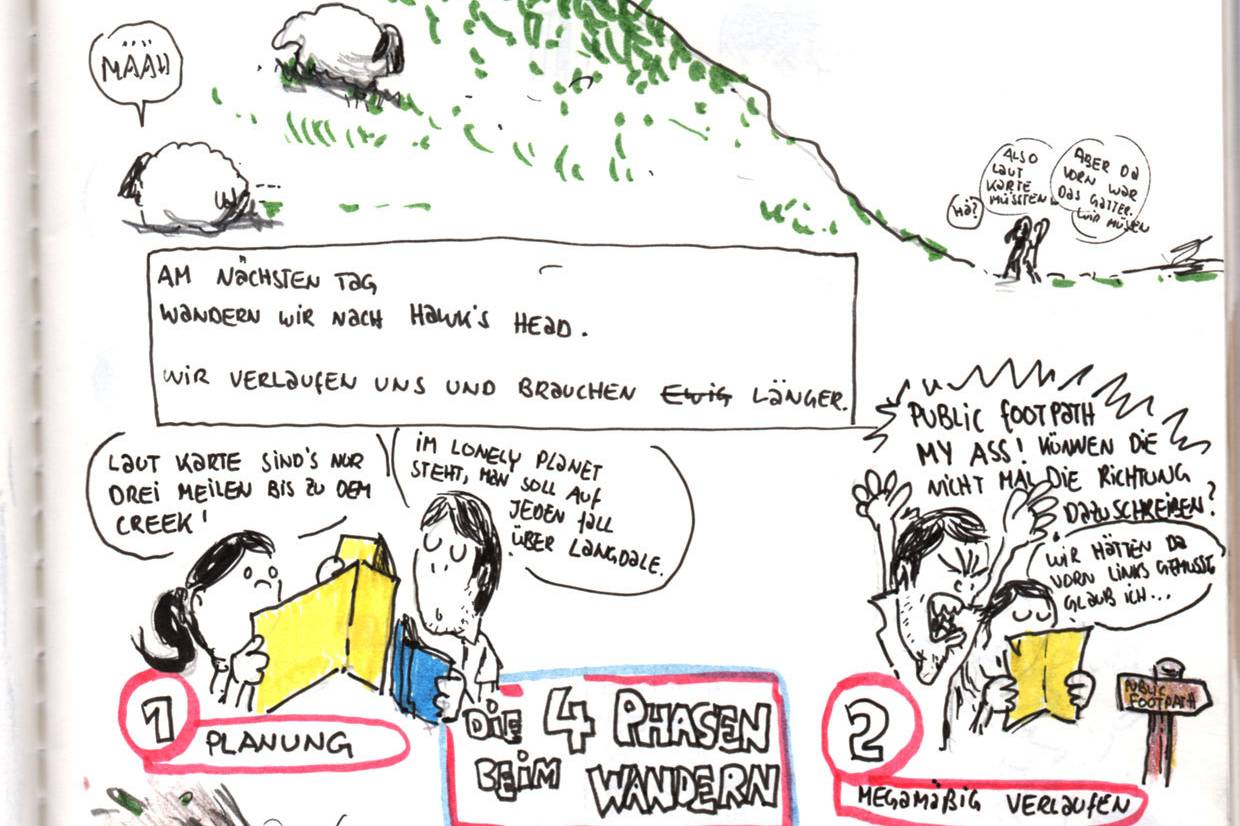 MÄÄH
HÄ?
ALSO
LAUT
KARTE
MÜSSTEN
ABER DA
VORN WAR
DAS GATTER.
WIR MÜSSEN
AM NÄCHSTEN TAG
WANDERN WIR NACH HAWK'S HEAD.
WIR VERLAUFEN UNS UND BRAUCHEN EWIG LÄNGER.
LAUT KARTE SIND'S NUR
DREI MEILEN BIS ZU DEM
CREEK!
IM LONELY PLANET
STEHT, MAN SOLL AUF
JEDEN FALL
ÜBER LANGDALE.
PUBLIC FOOTPATH
MY ASS! KÖNNEN DIE
NICHT MAL DIE RICHTUNG
DAZUSCHREIBEN?
WIR HÄTTEN DA
VORN LINKS GEMUSST
GLAUB ICH...
PUBLIC
FOOTPATH
1
PLANUNG
DIE 4 PHASEN
BEIM WANDERN
2
MEGAMÄßIG VERLAUFEN